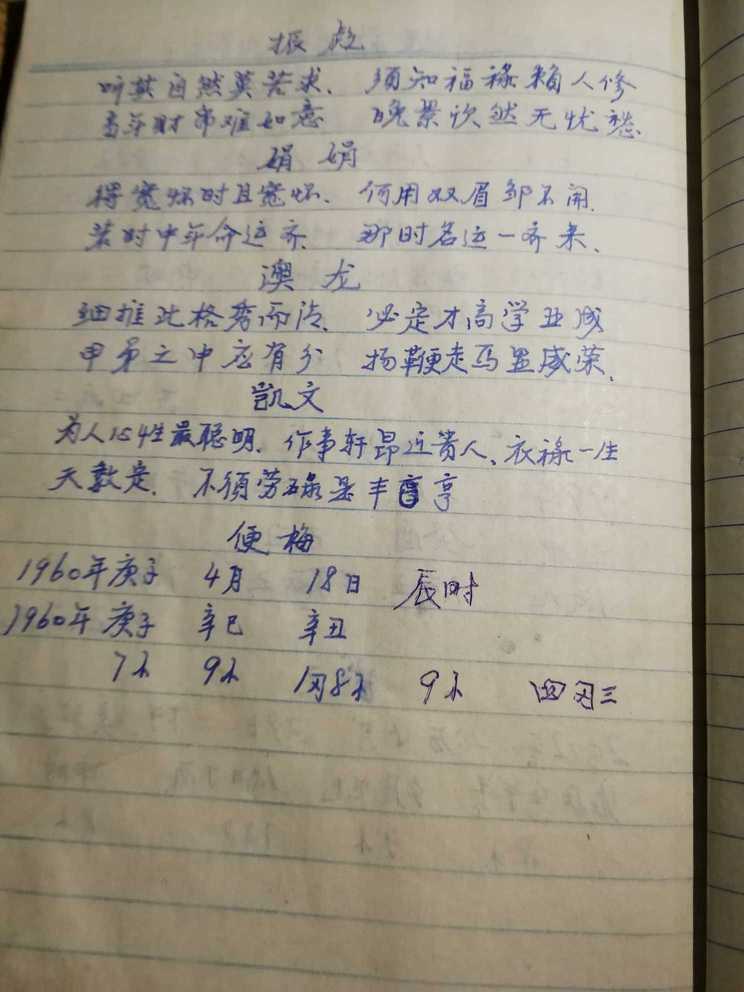 振彪
听其自然莫苦求、须知福禄赖人修
当年财帛难如意 晚景欣然无忧愁
娟娟
得宽怀时且宽怀、何用双眉邹不开
若时中年命运齐、那时名运一齐来、
澳龙
细推此格秀而清、必定才高学业成
甲第之中应有分 扬鞭走马显威荣、
凯文
为人心性最聪明、作事轩昂近贵人、衣禄一生
天数定、不须劳碌是丰亨
便梅
1960年庚子 4月 18日 辰时
1960年庚子 辛巳 辛丑
7 9 1 8 9 四 三